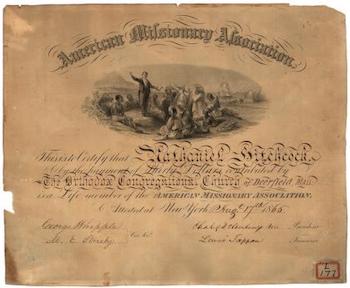 American Missionary Association
This is to Certify that Nathaniel Hitchcock
by the payment of Thirty Dollars contributed by
The Orthodox Congregational Church of Deerfield, Mass
is a Life member of the AMERICAN MISSIONARY ASSOCIATION.
Attested at New York Aug. 17th 1865
George Whipple
M. E. Strieby
Lewis Tappan Treasurer
177